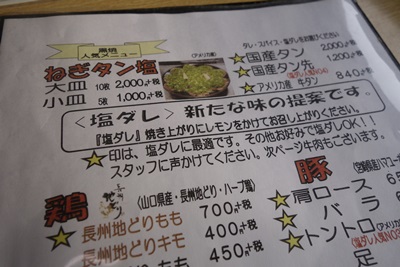 黒焼
人気メニュー
ねぎタン塩
(アメリカ産)
大皿 10枚 2,000円+税
小皿 5枚 1,000円+税
タレ・スパイス・塩ダレをお選びください
国産タン 2,000円+税
国産タン先 1,200円+税
(塩ダレ人気NO4)
アメリカ産 牛タン 840円+税
<塩ダレ> 新たな味の提案です。
『塩ダレ』焼き上がりにレモンをかけてお召し上がりください。
印は、塩ダレに最適です。その他お好みで塩ダレOK!!
スタッフに声かけてください。次ページ牛肉もございます。
鶏
(山口県産・長州地どり・ハーブ鶏)
長州地どりもも 700円+税
長州地どりキモ 400円+税
もも 450円+税
豚
肩ロース 65
バラ
トントロ
(アメリカ
(塩ダレ人気NO
足